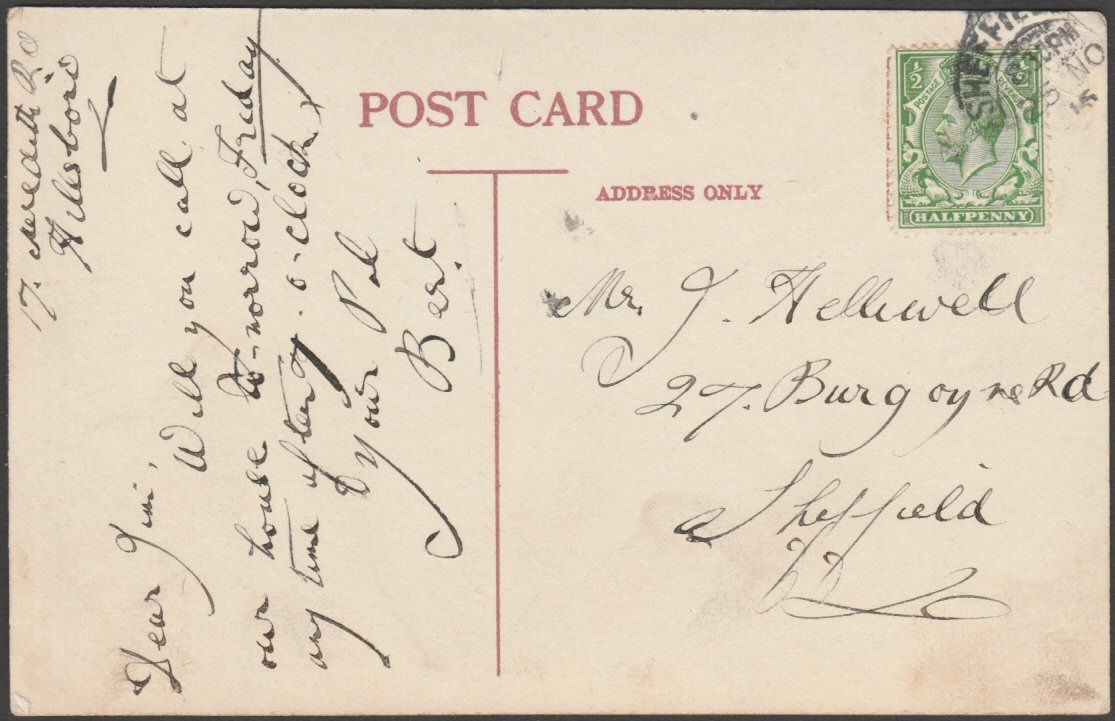 17. Meredith Rd
Hillsboro
Dear Jim,
Will you call at
our house to-morrow, Friday
any time after 7. o-clock
Your Pal
Bert.
POST CARD
ADDRESS ONLY
SHEFFIELD
NO
POSTAGE
REVENUE
½
½
HALFPENNY
Mr. J. Helliwell
27. Burgoyne Rd
Sheffield